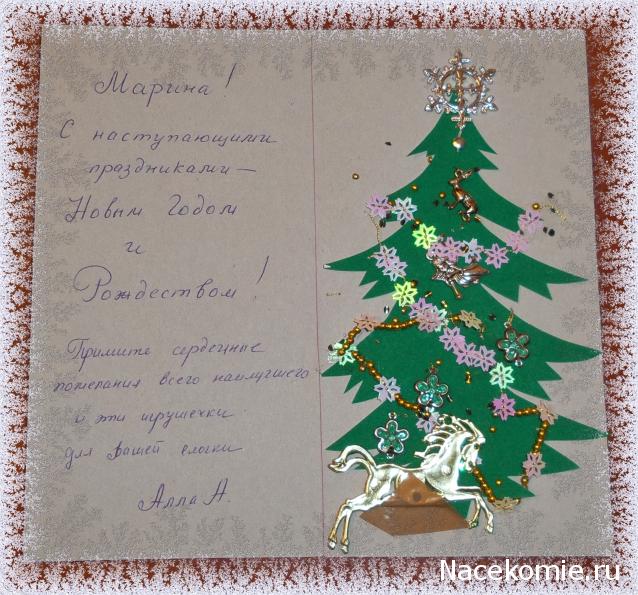 Марина!
С наступающими
праздниками —
Новым Годом
и
Рождеством!
Примите сердечные
пожелания всего наилучшего
и эти игрушечки
для Вашей елочки
Алла А.
Nacekomie.ru